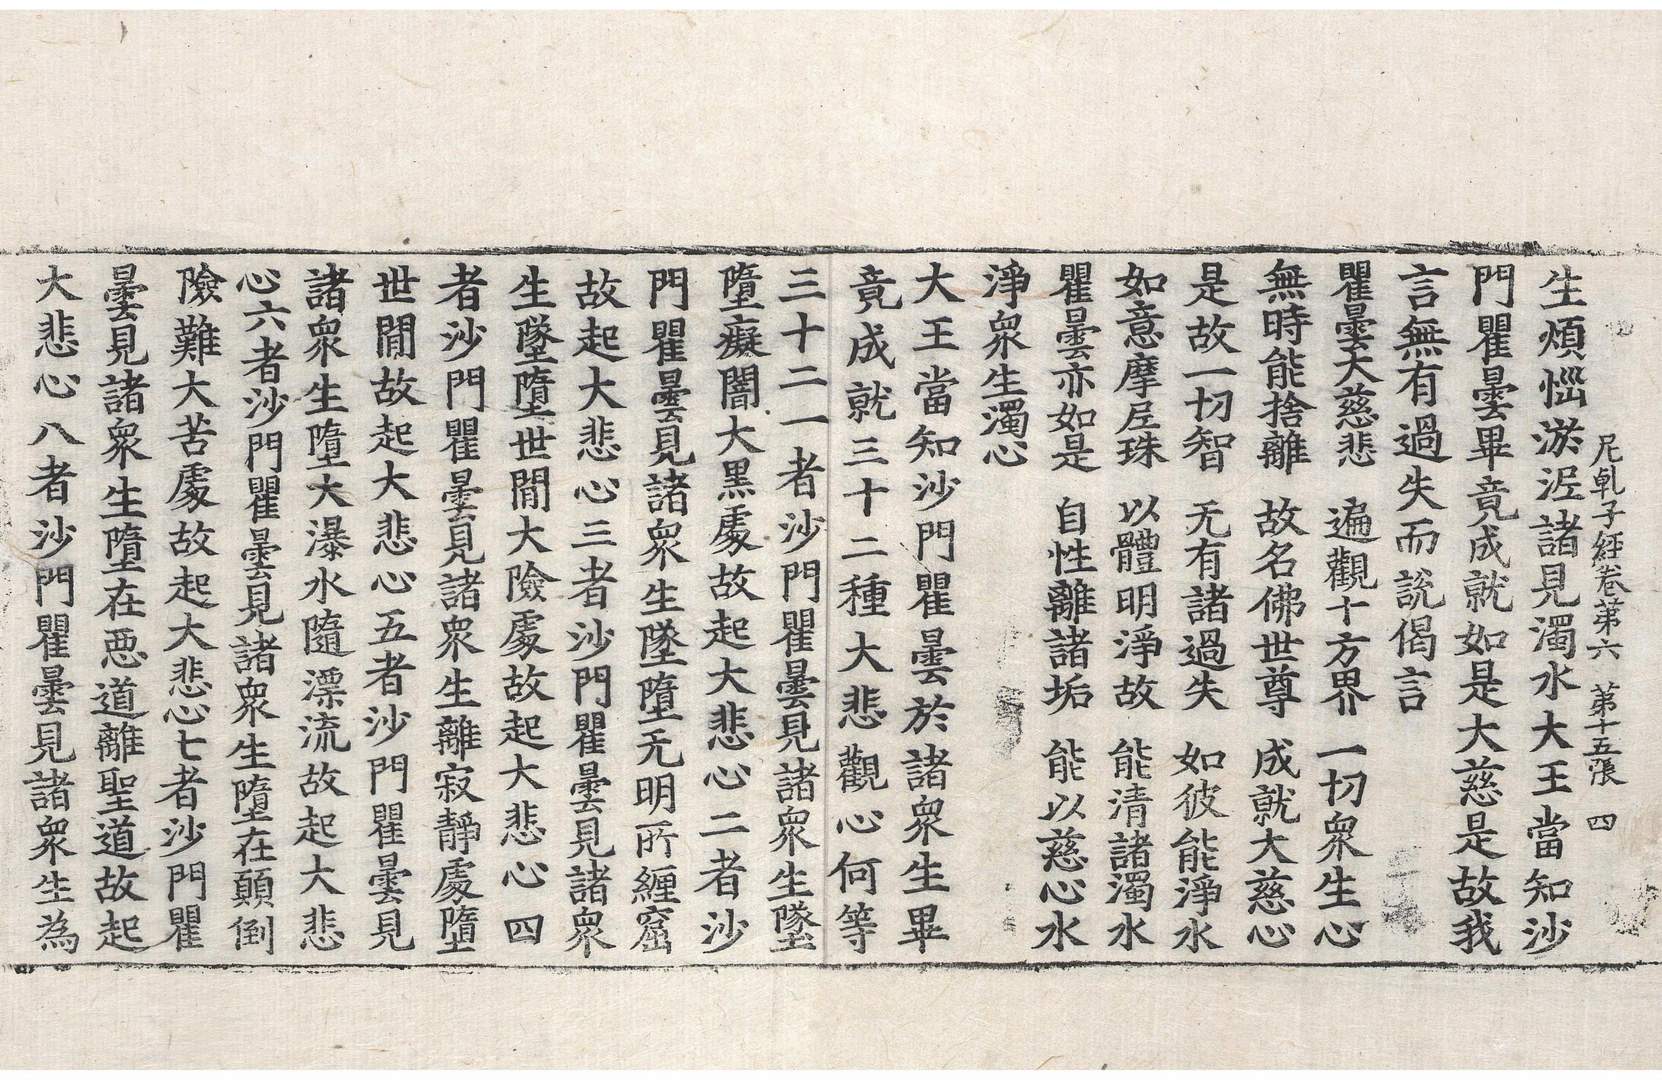 尼乹子經卷第六 第十五張 四
生煩惱淤泥諸見濁水大王當知沙
門瞿曇畢竟成就如是大慈是故我
言無有過失而説偈言
瞿曇大慈悲 遍觀十方界 一切衆生心
無時能捨離 故名佛世尊 成就大慈心
是故一切智 无有諸過失 如彼能淨水
如意摩尼珠 以體明淨故 能清諸濁水
瞿曇亦如是 自性離諸垢 能以慈心水
淨衆生濁心
大王當知沙門瞿曇於諸衆生畢
竟成就三十二種大悲觀心何等
三十二一者沙門瞿曇見諸衆生墜
墮癡闇大黒處故起大悲心二者沙
門瞿曇見諸衆生墜墮无明所纏窟
故起大悲心三者沙門瞿曇見諸衆
生墜墮世閒大險處故起大悲心四
者沙門瞿曇見諸衆生離寂靜處墮
世閒故起大悲心五者沙門瞿曇見
諸衆生墮大瀑水隨漂流故起大悲
心六者沙門瞿曇見諸衆生墮在顛倒
險難大苦處故起大悲心七者沙門瞿
曇見諸衆生墮在惡道離聖道故起
大悲心八者沙門瞿曇見諸衆生為